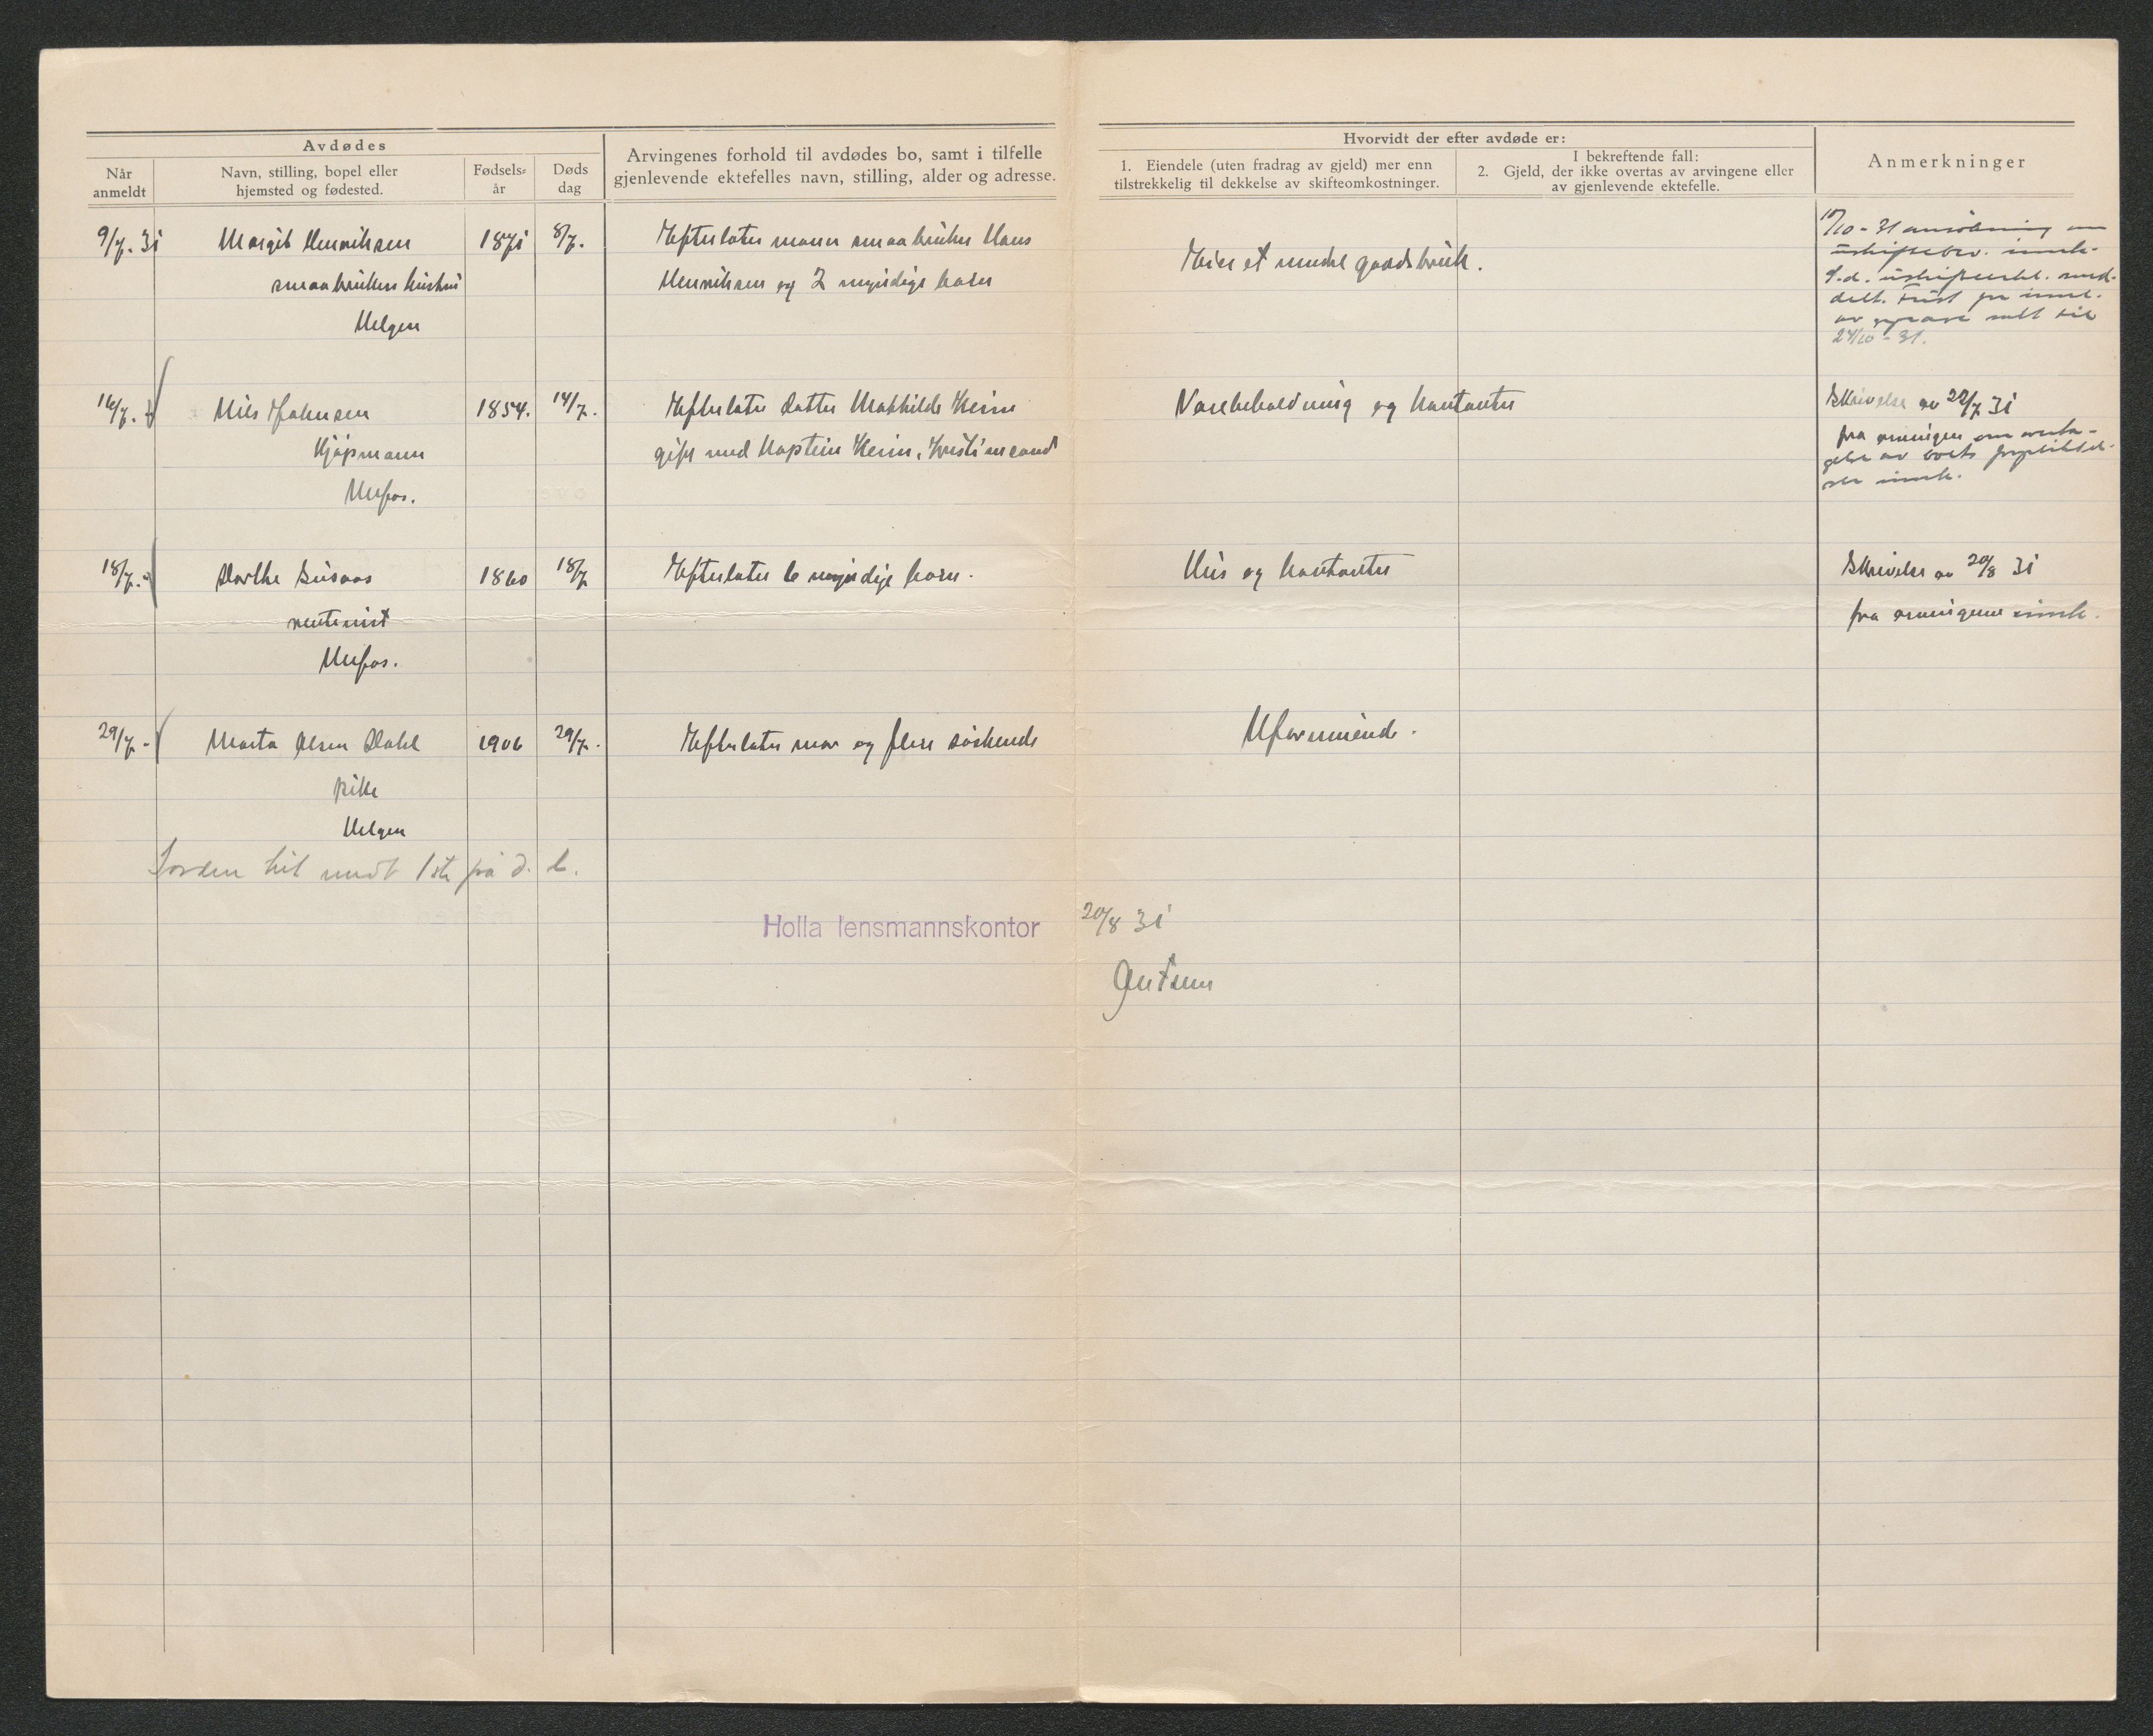 Avdødes
Når anmeldt
Navn, stilling, bopel eller hjemsted og fødested.
Fødsels-år
Døds dag
Arvingenes forhold til avdødes bo, samt i tilfelle
gjenlevende ektefelles navn, stilling, alder og adresse.
Hvorvidt der efter avdøde er:
1. Eiendele (uten fradrag av gjeld) mer enn
tilstrekkelig til dekkelse av skifteomkostninger.
I bekreftende fall:
2. Gjeld, der ikke overtas av arvingene eller
av gjenlevende ektefelle.
Anmerkninger
9/7. 31 Margit Henriksen 1871 8/7. Efterlater mann smaabruker Hans
smaabrukers hustru Henriksen og 2 myndige barn
Helgen
Eier et mindre gaardsbruk.
10/10 - 31 ansökning om
uskiftebev. innk.
S.d. uskifteerkl. med-
delt. Frist for innl.
av opgave satt til
24/10 - 31.
16/7. Nils Johnsen 1854. 14/7. Efterlater datter Mathilde
Kjøpmann gift med Kaptein Kristiansand
Ulefos.
Varebeholdning og kontanter
Skrivelse av 22/7 31
fra arvingen om overta-
gelse av boets forpliktel-
ser innk.
18/7. Dorthe 1860 18/7 Efterlater 6 myndige barn.
rentenist
Ulefos.
Hus og kontanter
Skrivelse av 20/8 31
fra arvingene innk.
29/7. Marta Olsen Dahl 1906 29/7. Efterlater mor og flere søskende
pike
Helgen
Uformuende.
på d. b.
Holla lensmannskontor 20/8 31